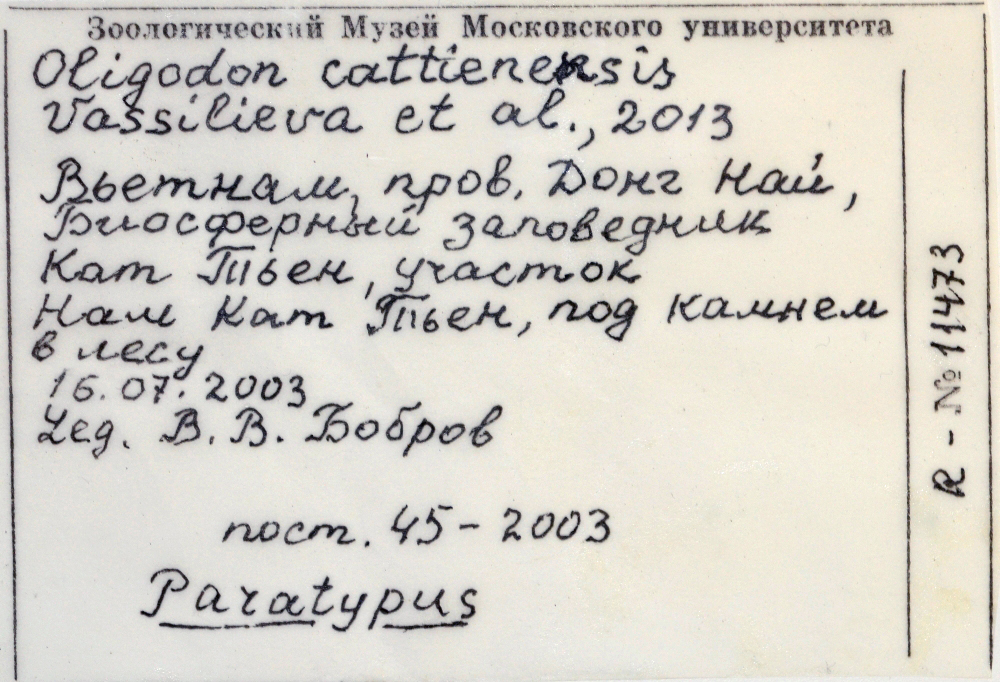 Зоологический Музей Московского университета
Oligodon cattienensis
Vassilieva et al., 2013
Вьетнам, пров. Донг Най,
Биосферный заповедник
Кат Тьен, участок
Нам Кат Тьен, под камнем
в лесу
16.07.2003
Leg. В. В. Бобров
пост. 45-2003
Paratypus
R - №11473